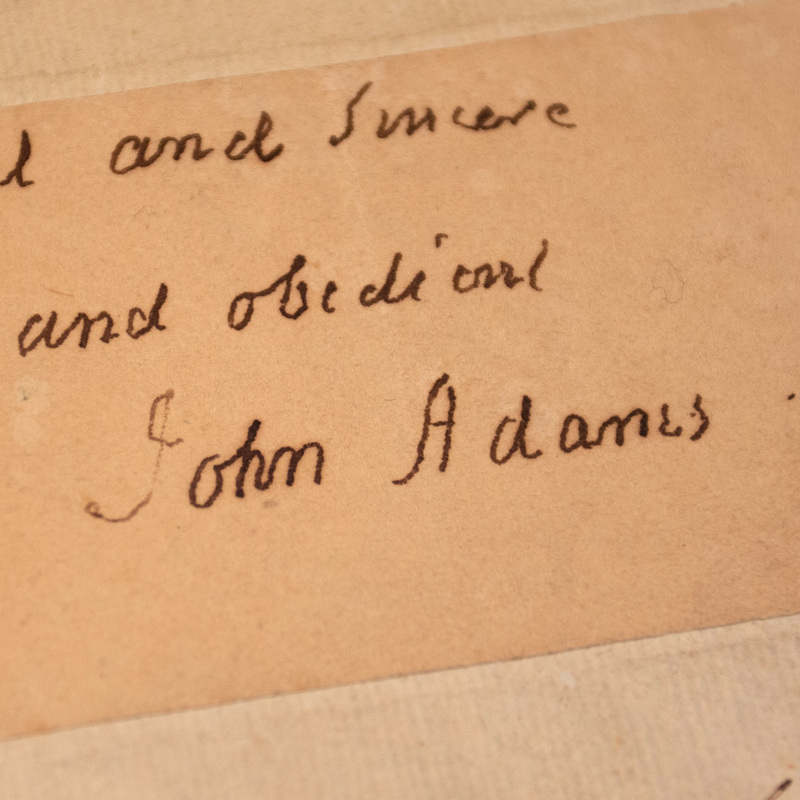 and Sincere
and obedient
John Adams